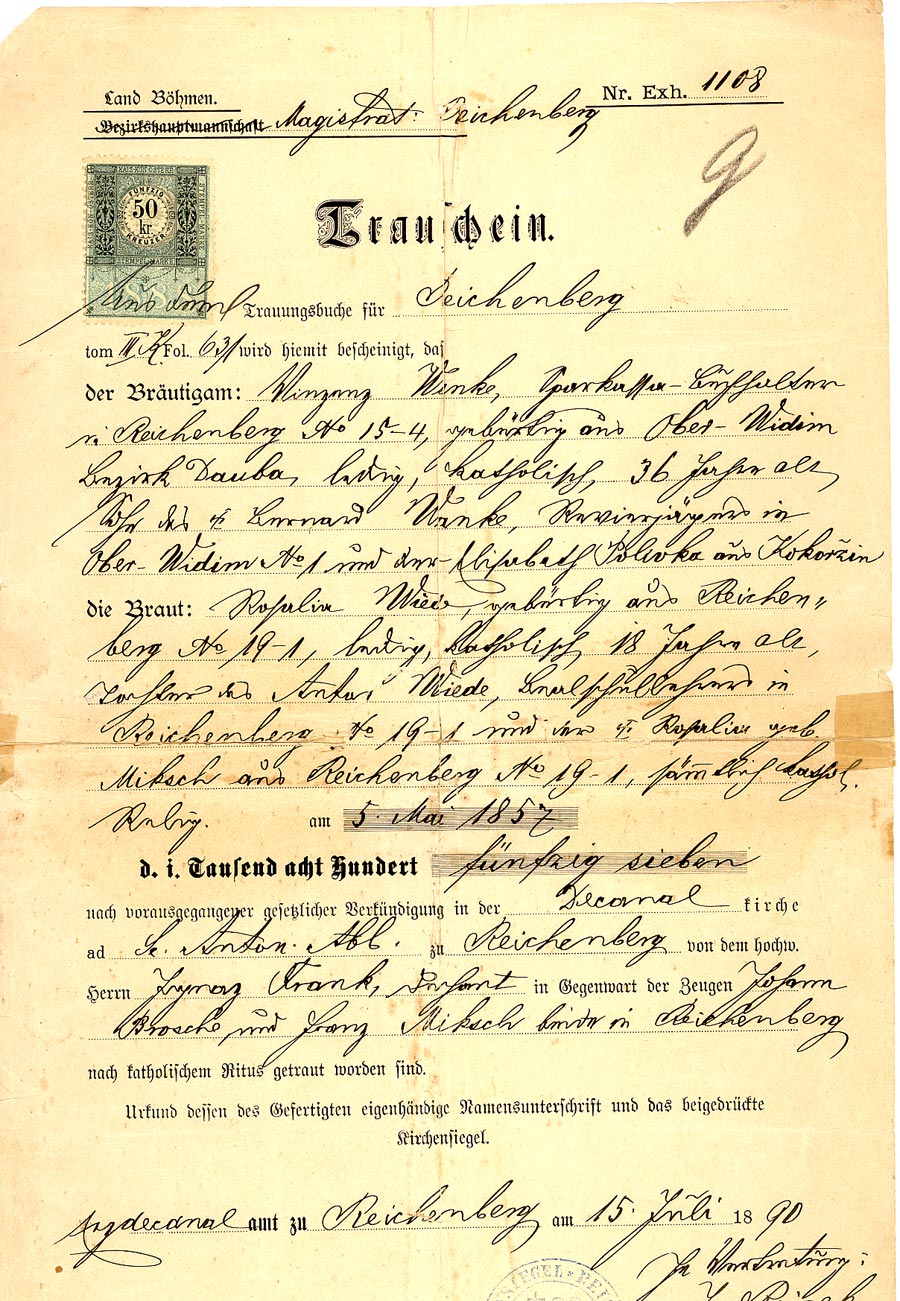 Land Böhmen.
Nr. Exh. 1108
Bezirkshauptmannschaft Magistrat: Reichenberg
9
KAIS. KÖN. ÖSTERR.
STEMPEL-MARKE
FÜNFZIG
50
kr.
KREUZER
STEMPELMARKE
Trauschein.
Aus dem Trauungsbuche für Reichenberg
tom III K Fol. 631 wird hiemit bescheinigt, daß
der Bräutigam: Vinzenz Wenke, Sparkassa-Buchhalter
in Reichenberg No 15-4, gebürtig aus Ober-Widim
Bezirk Dauba, ledig, katholisch, 36 Jahre alt,
Sohn des † Bernard Wenke, Revierjägers in
Ober-Widim No 1 und der Elisabeth Polivka aus Kokořzin
die Braut: Rosalia Wiede, gebürtig aus Reichen„
berg No 19-1, ledig, katholisch, 18 Jahre alt,
Tochter des Anton Wiede, Realschullehrers in
Reichenberg No 19-1 und der † Rosalia geb.
Miksch aus Reichenberg No 19-1, sämtlich kathol.
Relig. am 5. Mai 1857
d. i. Tausend acht Hundert fünfzig sieben
nach vorausgegangener gesetzlicher Verkündigung in der Decanal kirche
ad St. Anton. Abb. zu Reichenberg von dem hochw.
Herrn Ignaz Frank, Dechant in Gegenwart der Zeugen Johann
Brosche, und Franz Miksch beide in Reichenberg
nach katholischem Ritus getraut worden sind.
Urkund dessen des Gefertigten eigenhändige Namensunterschrift und das beigedrückte
Kirchensiegel.
Erzdecanal amt zu Reichenberg am 15. Juli 1890
In Vertretung: